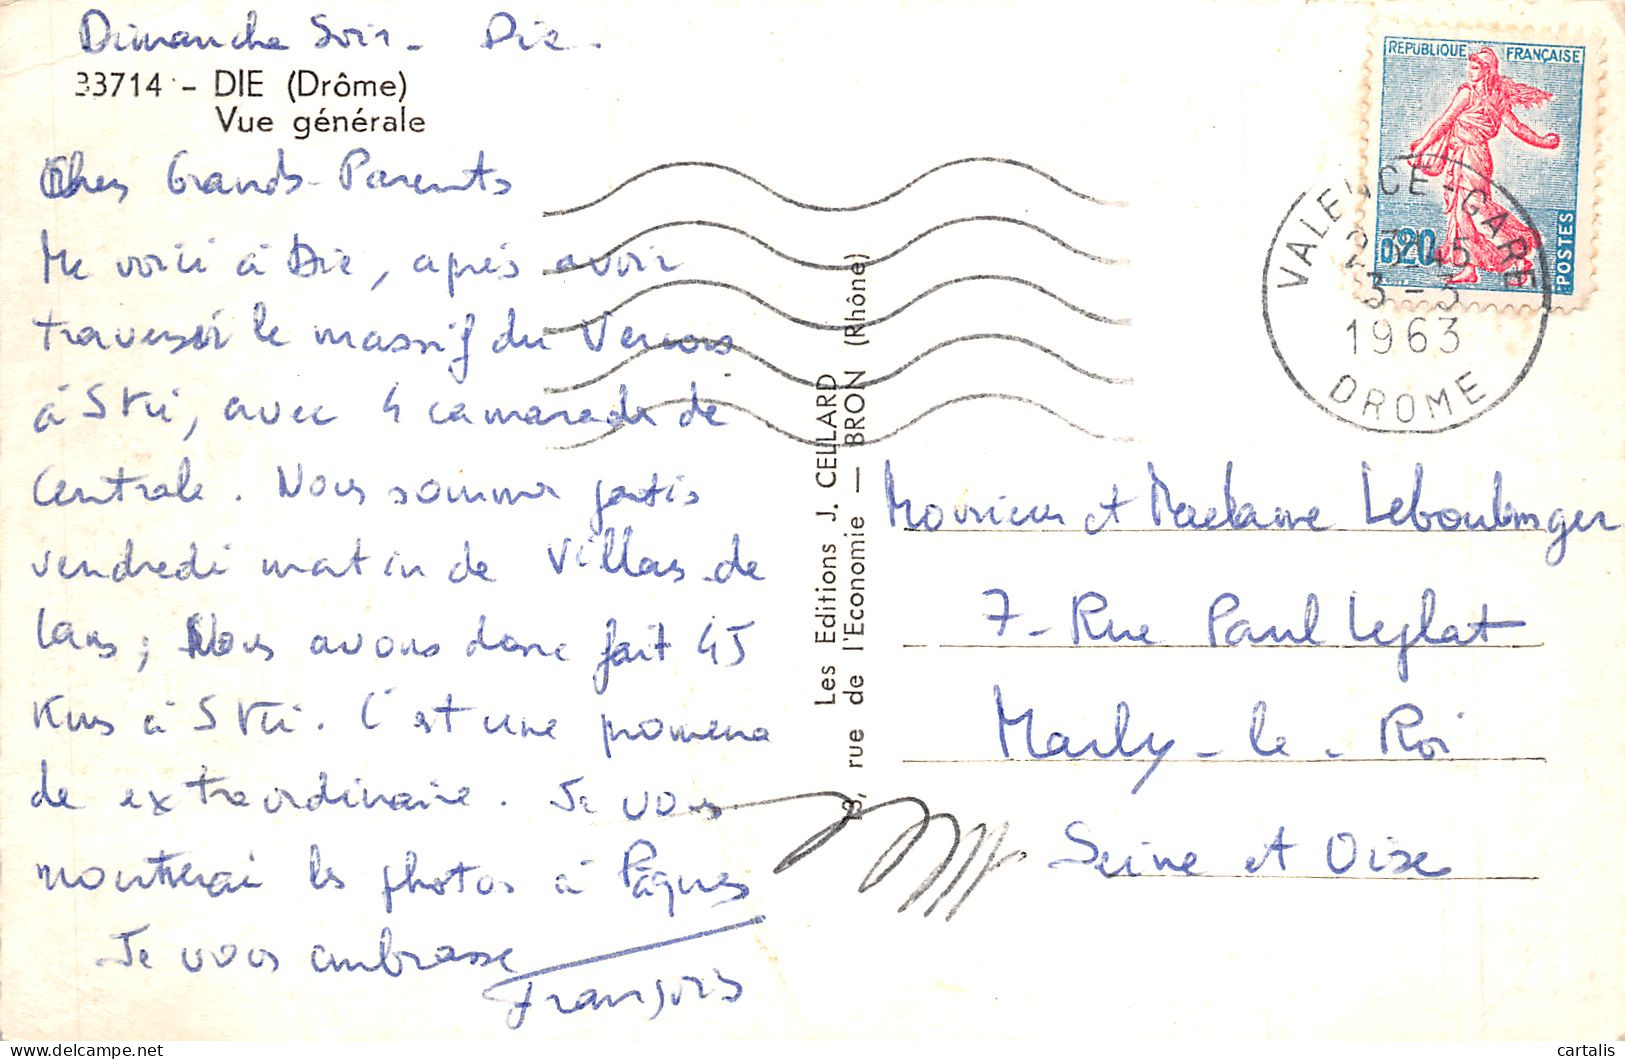 Dimanche Soir - Die.
33714 - DIE (Drôme)
Vue générale
Chers Grands-Parents
Me voici à Die, après avoir
traversé le massif du Vercors
à Ski, avec 4 camarades de
Centrale. Nous sommes partis
vendredi matin de Villars-de
Lans; Nous avons donc fait 45
Kms à Ski. C'est une promena
de extraordinaire. Je vous
montrerai les photos à Pâques
Je vous embrasse
François
Les Editions J. CELLARD
rue de l'Economie — BRON (Rhône)
REPUBLIQUE FRANÇAISE
0,20
POSTES
VALENCE-GARE
3-3
1963
DROME
Monsieur et Madame Leboulanger
7- Rue Paul Leplat
Marly-le-Roi
Seine et Oise
cartalis